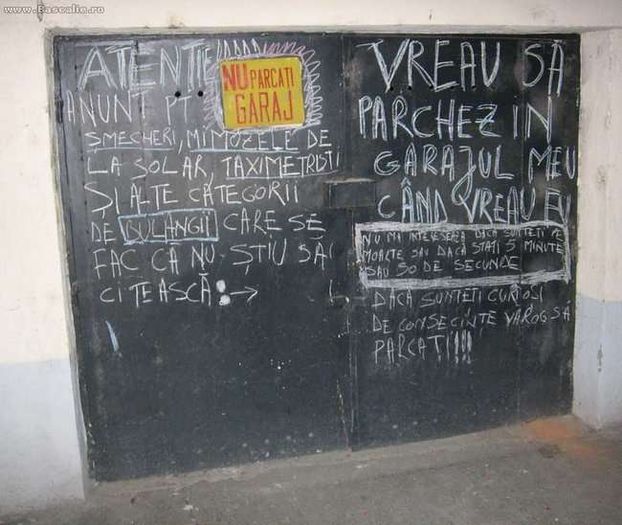 www.Bascalie.ro
ATENȚIE
NU PARCAȚI
GARAJ
ANUNȚ PT
ȘMECHERI, MIMOZELE DE
LA SOLAR, TAXIMETRIȘTI
ȘI ALTE CATEGORII
DE BULANGII CARE SE
FAC CĂ NU ȘTIU SĂ
CITEASCĂ: →
VREAU SĂ
PARCHEZ IN
GARAJUL MEU
CÂND VREAU EU
NU MĂ INTERESEAZĂ DACĂ SUNTEȚI PE
MOARTE SAU DACĂ STAȚI 5 MINUTE
SAU 50 DE SECUNDE
DACĂ SUNTEȚI CURIOȘI
DE CONSECINȚE VĂ ROG SĂ
PARCAȚI!!!